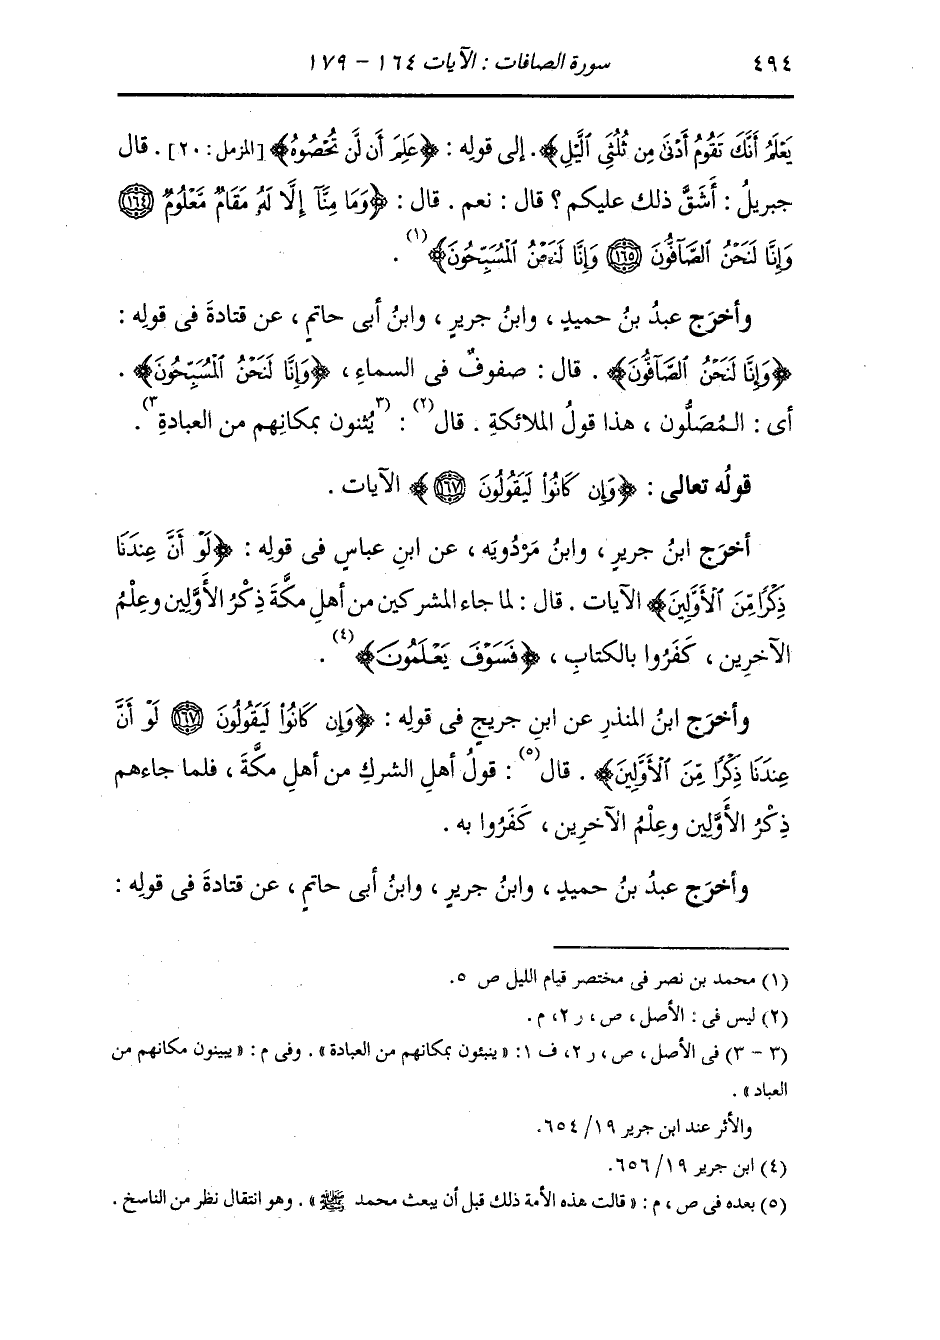 ٤٩٤ سورة الصافات : الآيات ١٦٤ – ١٧٩
يَعْلَمُ أَنَّكَ تَقُومُ أَدْنَى مِن ثُلُثَيِ ٱلَّيْلِ﴾. إلى قولِه : ﴿عَلِمَ أَن لَّن تُحْصُوهُ﴾ [المزمل : ٢٠] . قال
جبريلُ : أَشَقَّ ذلك عليكم ؟ قال : نعم . قال : ﴿وَمَا مِنَّآ إِلَّا لَهُۥ مَقَامٌ مَّعْلُومٌ ١٦٤
وَإِنَّا لَنَحْنُ ٱلصَّآفُّونَ ١٦٥ وَإِنَّا لَنَحْنُ ٱلْمُسَبِّحُونَ﴾(١) .
وأخرَج عبدُ بنُ حميدٍ ، وابنُ جريرٍ ، وابنُ أبى حاتمٍ ، عن قتادةَ فى قولِه :
﴿وَإِنَّا لَنَحْنُ ٱلصَّآفُّونَ﴾ . قال : صفوفٌ فى السماءِ ، ﴿وَإِنَّا لَنَحْنُ ٱلْمُسَبِّحُونَ﴾ .
أى : المُصَلُّون ، هذا قولُ الملائكةِ . قال(٢) : (٣يُثنون بمكانِهم من العبادةِ٣) .
قولُه تعالى : ﴿وَإِن كَانُوا۟ لَيَقُولُونَ ١٦٧﴾ الآيات .
أخرَج ابنُ جريرٍ ، وابنُ مَرْدُويَه ، عن ابنِ عباسٍ فى قولِه : ﴿لَوْ أَنَّ عِندَنَا
ذِكْرًا مِّنَ ٱلْأَوَّلِينَ﴾ الآيات . قال : لما جاء المشركين من أهلِ مكَّةَ ذِكْرُ الأَوَّلِين وعِلْمُ
الآخرِين ، كفَرُوا بالكتابِ ، ﴿فَسَوْفَ يَعْلَمُونَ﴾(٤) .
وأخرَج ابنُ المنذرِ عن ابنِ جريجٍ فى قولِه : ﴿وَإِن كَانُوا۟ لَيَقُولُونَ ١٦٧ لَوْ أَنَّ
عِندَنَا ذِكْرًا مِّنَ ٱلْأَوَّلِينَ﴾ . قال(٥) : قولُ أهلِ الشركِ من أهلِ مكَّةَ ، فلما جاءهم
ذِكْرُ الأَوَّلِين وعِلْمُ الآخرِين ، كَفَرُوا به .
وأخرَج عبدُ بنُ حميدٍ ، وابنُ جريرٍ ، وابنُ أبى حاتمٍ ، عن قتادةَ فى قولِه :
(١) محمد بن نصر فى مختصر قيام الليل ص ٥.
(٢) ليس فى : الأصل ، ص ، ر ٢، م .
(٣ – ٣) فى الأصل ، ص ، ر ٢، ف ١: « ينبئون بمكانهم من العبادة » . وفى م : « يبينون مكانهم من
العباد » .
والأثر عند ابن جرير ١٩/ ٦٥٤.
(٤) ابن جرير ١٩/ ٦٥٦.
(٥) بعده فى ص ، م : « قالت هذه الأمة ذلك قبل أن يبعث محمد ﷺ » . وهو انتقال نظر من الناسخ .